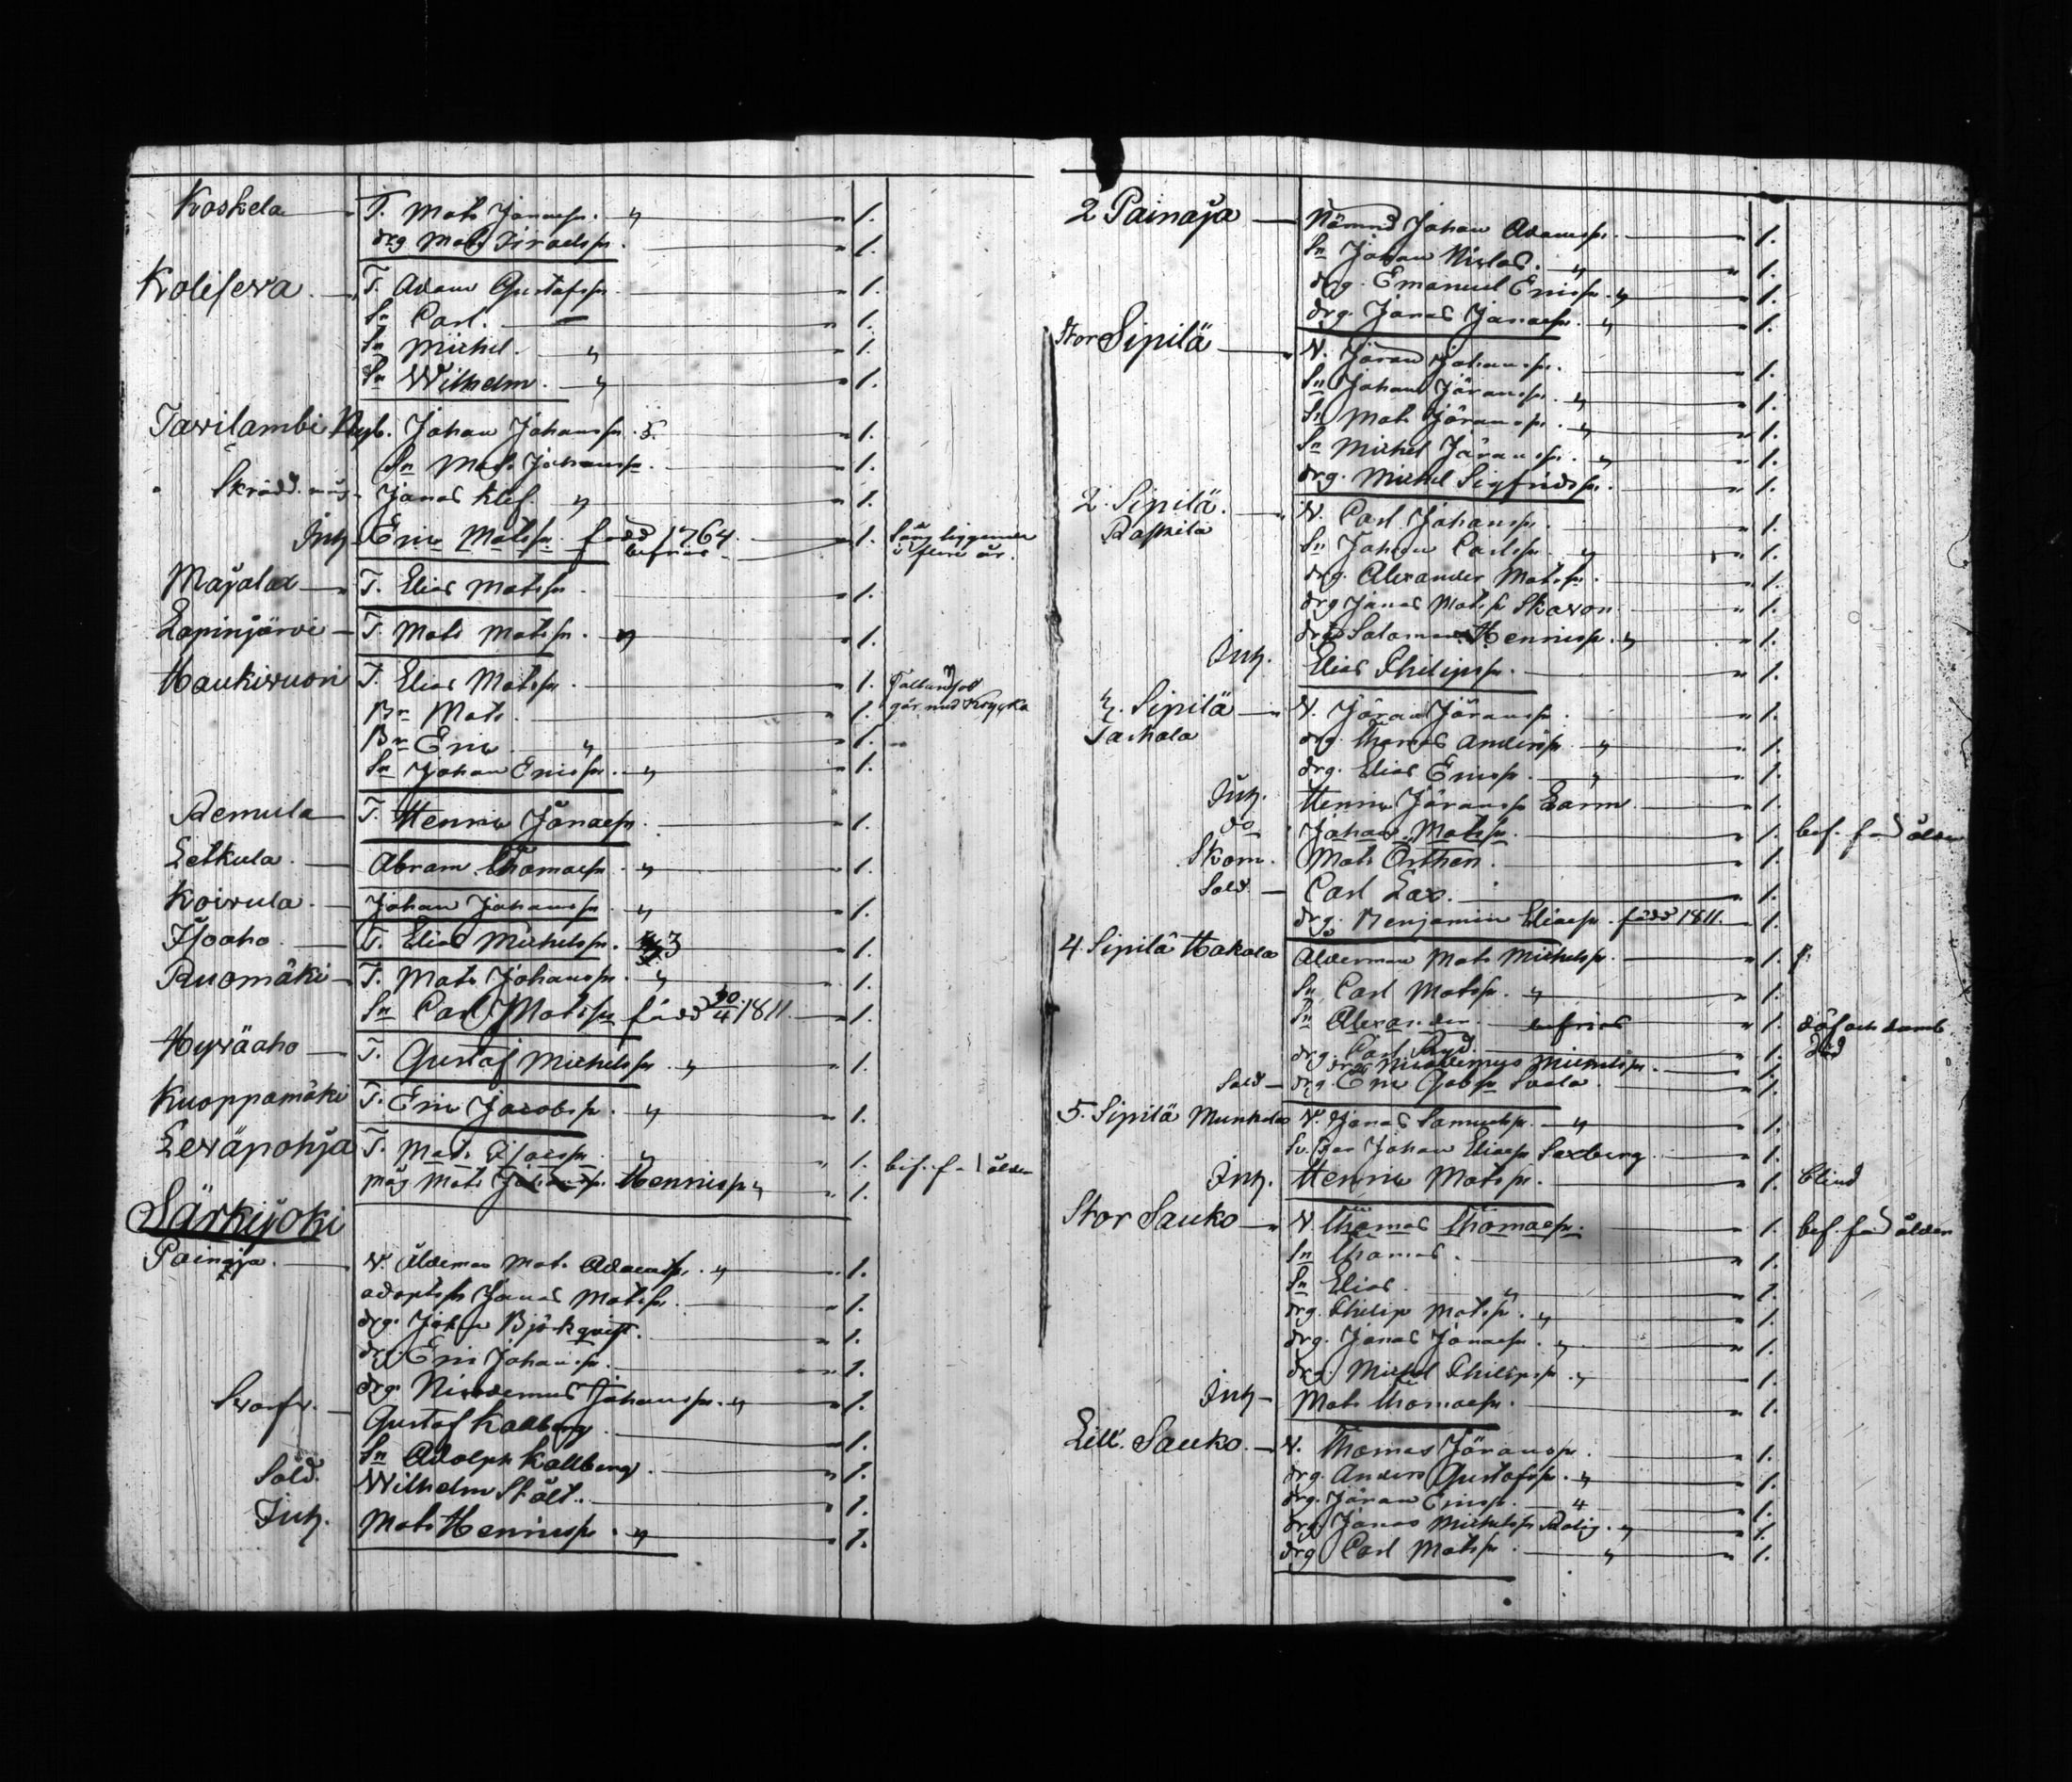 Koskela T. Mats Jonaesn. " 1.
drg Mats Israelsn. 1.
Kolisewa T. Adam Gustafssn 1.
Sn Carl. 1.
Sn Michel. " 1.
Sn Wilhelm. " 1.
Tawilambi Nyb. Johan Johanssn. 5. 1.
Sn Mats Johanssn. 1.
Skrädd. Jonas Klef. " 1.
Inh. Eric Matssn. född 1764. 1. Säng liggande
befrias i flere år.
Majalax T. Elias Matssn. 1.
Lapinjärvi T. Mats Matssn. " 1.
Haukivuori T. Elias Matssn. 1.
Br Mats. 1. går med Krycka
Br Eric " 1.
Sn Johan Ericssn. " 1.
Remula T. Henric Jonaesn. 1.
Letkula. Abram Thomaesn. " 1.
Koivula. Johan Johanssn. " 1.
Isoaho. T. Elias Michelssn. 3 1.
Ruomäki T. Mats Johanssn. " 1.
Sn Carl Matssn född 20/4 1811. 1.
Hywäaho T. Gustaf Michelssn. " 1.
Kuoppamäki T. Eric Jacobssn. " 1.
Lewäpohja T. Mats " 1. bef. f. ålder
måg Mats Henricssn " 1.
Särkijoki
Painaja. N. Ålderman Mats Adamssn. " 1.
adoptsn Jonas Matssn. 1.
drg. Johan Björkqvist. 1.
drg. Eric Johanssn. 1.
drg. Nicodemus Johanssn. " 1.
Swarfv. Gustaf Kallberg 1.
Sn Adolph Kallberg. 1.
Sold. Wilhelm Stålt. 1.
Inh. Mats Henricssn. " 1.
2 Painaja Nämnd Johan Adamssn. 1.
Sn Johan Niclas. " 1.
drg. Emanuel Ericssn. " 1.
drg. Jonas Jonaesn. " 1.
Stor Sipilä N. Jöran Johanssn. 1.
Sn Johan Jöranssn. " 1.
Sn Mats Jöranssn. " 1.
Sn Michel Jöranssn. " 1.
drg. Michel Sigfridssn. 1.
2. Sipilä. N. Carl Johanssn. 1.
Raskila Sn Johan Carlssn. " 1.
drg. Alexander Matssn. 1.
drg Jonas Matssn Skawon 1.
drg Salomon Henricssn. " 1.
Inh. Elias Philipssn. 1.
Sipilä N. Jöran Jöranssn. 1.
Taskala drg. Thomas Anderssn. " 1.
drg. Elias Ericssn. " 1.
Inh. Henric Jöranssn Larm 1.
do Johan Matssn. 1. bef. för ålder
Skom. Mats Örthen. 1.
Sold Carl Lax. 1.
drg. Benjamin Eliaesn. född 1811. 1.
4. Sipilä Hakala Ålderman Mats Michelssn. 1.
Sn Carl Matssn. " 1.
Sn Alexander befrias 1. döf och dumb
drg. Carl 1. död
drg Nicodemus Michelssn. 1.
Sold drg. Eric Jacobssn 1.
5. Sipilä Munkala N. Jonas Samuelssn. " 1.
Johan Eliaesn Saxberg 1.
Inh. Henric Matssn. 1. blind
Stor Sauko N. Thomas Thomaesn. 1. bef. för ålder
Sn Thomas. 1.
Sn Elias " 1.
drg. Philip Matssn. " 1.
drg. Jonas Jonaesn. " 1.
drg. Michel Philipssn " 1.
Inh Mats Thomaesn. 1.
Lill. Sauko. N. Thomas Jöranssn. 1.
drg. Anders Gustafssn. " 1.
drg. Jöran Ericssn. " 1.
drg. Jonas Michelssn Rolig. " 1.
drg Carl Matssn. " 1.